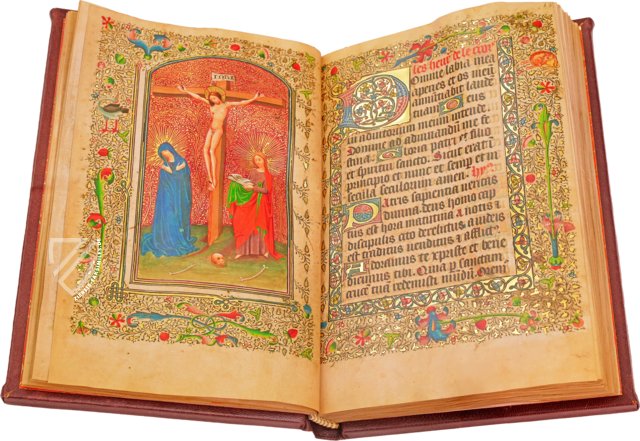 INRI
les heur' de le croi
Domine labia mea
aperies et os meu
annuntiabit laude
tuam Deus
in adiutorium meum intende
Domine ad adiuvandu me fe
stina Gloria patri et filio
et spiritui sancto Sicut erat i
principio et nunc et semp et in
secula seculorum amen hy
Patris sapientia veritas
divina deus homo cap
tus est hora matutina a notis
discipulis cito derelictus iudeis
est traditus venditus et afflict
Adoramus te xpiste et bene
dicimus tibi Quia p sanctam